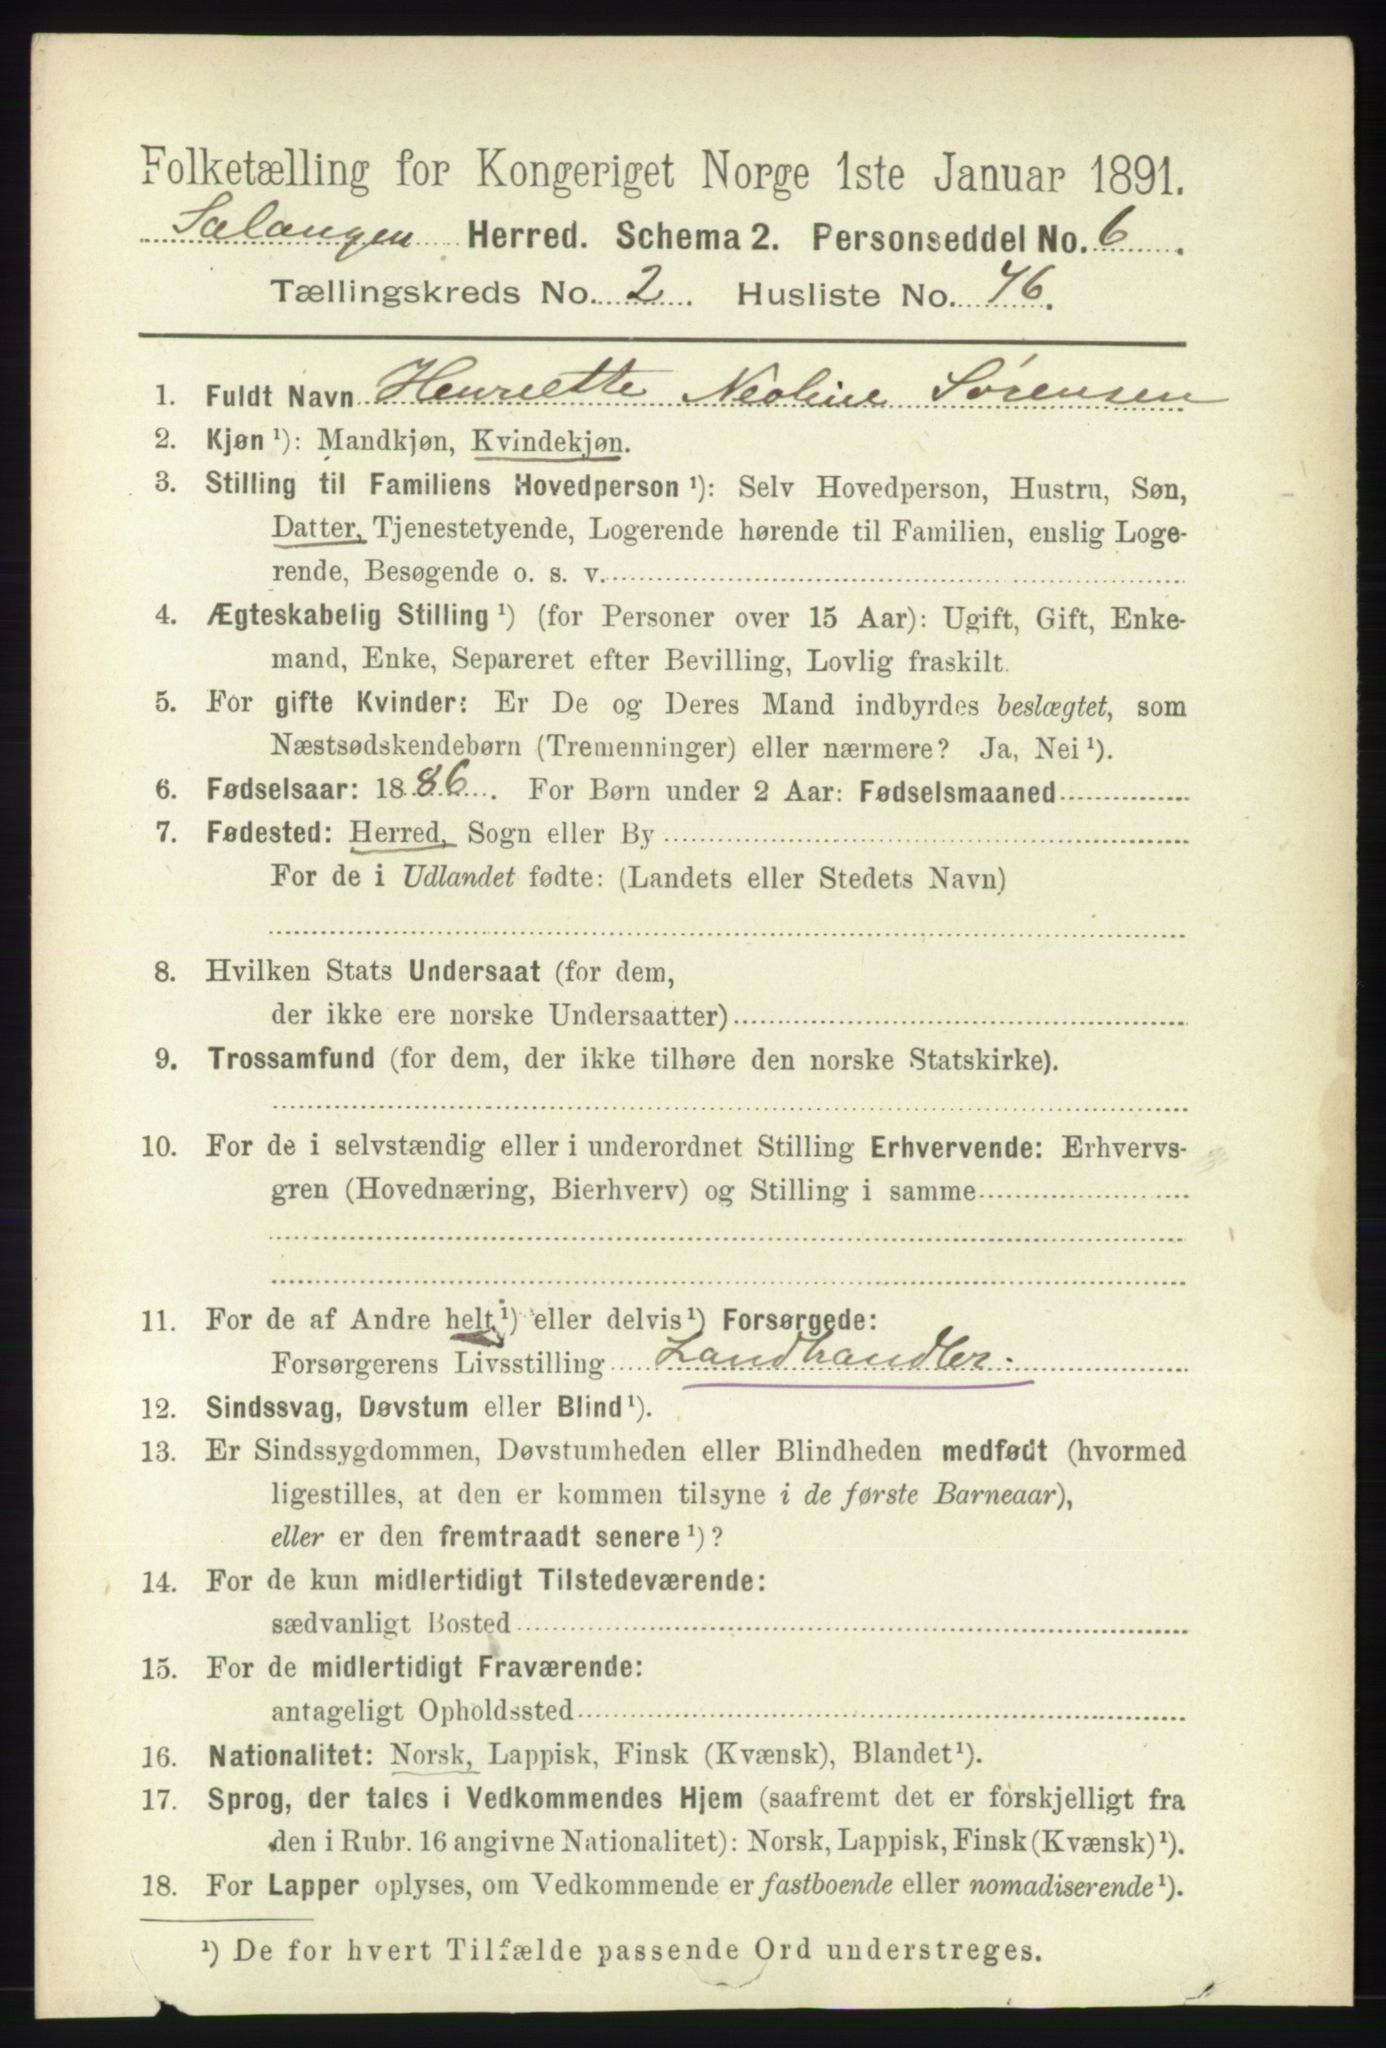 Folketælling for Kongeriget Norge 1ste Januar 1891.
Salangen Herred. Schema 2. Personseddel No. 6.
Tællingskreds No. 2. Husliste No. 46.
1. Fuldt Navn Henriette Neoline Sørensen
2. Kjøn ¹): Mandkjøn, Kvindekjøn.
3. Stilling til Familiens Hovedperson ¹): Selv Hovedperson, Hustru, Søn,
Datter, Tjenestetyende, Logerende hørende til Familien, enslig Loge-
rende, Besøgende o. s. v.
4. Ægteskabelig Stilling ¹) (for Personer over 15 Aar): Ugift, Gift, Enke-
mand, Enke, Separeret efter Bevilling, Lovlig fraskilt.
5. For gifte Kvinder: Er De og Deres Mand indbyrdes beslægtet, som
Næstsødskendebørn (Tremenninger) eller nærmere? Ja, Nei ¹).
6. Fødselsaar: 1886. For Børn under 2 Aar: Fødselsmaaned
7. Fødested: Herred, Sogn eller By
For de i Udlandet fødte: (Landets eller Stedets Navn)
8. Hvilken Stats Undersaat (for dem,
der ikke ere norske Undersaatter)
9. Trossamfund (for dem, der ikke tilhøre den norske Statskirke).
10. For de i selvstændig eller i underordnet Stilling Erhvervende: Erhvervs-
gren (Hovednæring, Bierhverv) og Stilling i samme
11. For de af Andre helt ¹) eller delvis ¹) Forsørgede:
Forsørgerens Livsstilling Landhandler.
12. Sindssvag, Døvstum eller Blind ¹).
13. Er Sindssygdommen, Døvstumheden eller Blindheden medfødt (hvormed
ligestilles, at den er kommen tilsyne i de første Barneaar),
eller er den fremtraadt senere ¹)?
14. For de kun midlertidigt Tilstedeværende:
sædvanligt Bosted
15. For de midlertidigt Fraværende:
antageligt Opholdssted
16. Nationalitet: Norsk, Lappisk, Finsk (Kvænsk), Blandet ¹).
17. Sprog, der tales i Vedkommendes Hjem (saafremt det er forskjelligt fra
den i Rubr. 16 angivne Nationalitet): Norsk, Lappisk, Finsk (Kvænsk) ¹).
18. For Lapper oplyses, om Vedkommende er fastboende eller nomadiserende ¹).
¹) De for hvert Tilfælde passende Ord understreges.